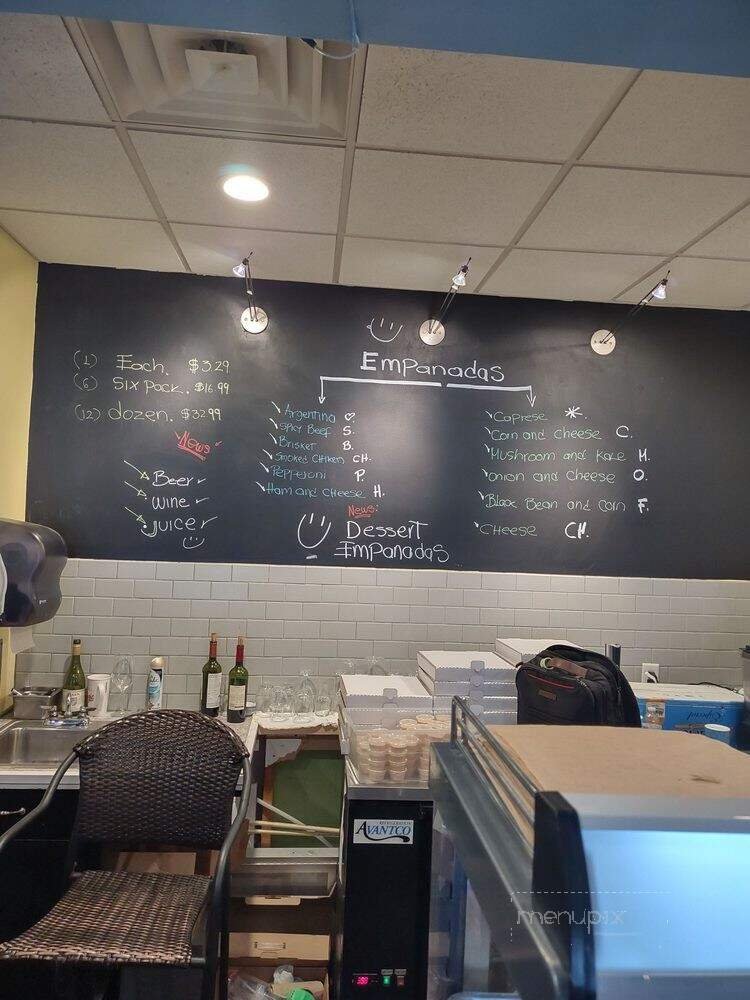 Empanadas
(1) Each. $3.29
(6) Six Pack. $16.99
(12) dozen. $32.99
News
Beer
wine
juice
Argentina
Spicy Beef S.
Brisket B.
Smoked Chiken CH.
Pepperoni P.
Ham and cheese H.
News:
Dessert
Empanadas
Caprese *.
Corn and cheese C.
Mushroom and Kale M.
onion and cheese O.
Black Bean and Corn F.
CHeese CH.
AVANTCO
REFRIGERATION
menupix